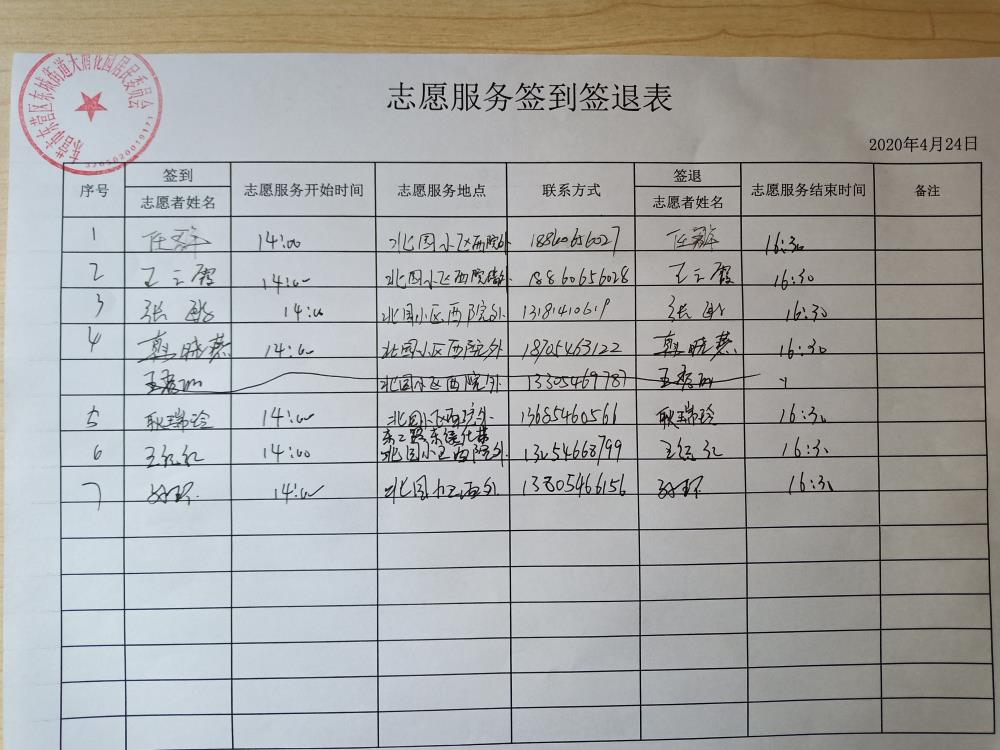 东营市东营区东城街道大院北四居民委员会
3705020019171
志愿服务签到签退表
2020年4月24日
序号 签到 志愿者姓名 志愿服务开始时间 志愿服务地点 联系方式 签退 志愿者姓名 志愿服务结束时间 备注
1 任翠萍 14:00 北园小区西院外 18860656027 任翠萍 16:30
2 王立霞 14:00 北园小区西院外 18860656028 王立霞 16:30
3 张 14:00 北园小区西院外 13181410619 张 16:30
4 韩晓燕 14:00 北园小区西院外 18705463122 韩晓燕 16:30
王秀 北园小区西院外 13305469787 王秀
5 耿瑞玲 14:00 北园小区西院外 13685460566 耿瑞玲 16:30
东二路东绿化带
6 王红 14:00 北园小区西院外 13054668799 王红 16:30
7 14:00 北园小区西外 13805466156 16:30